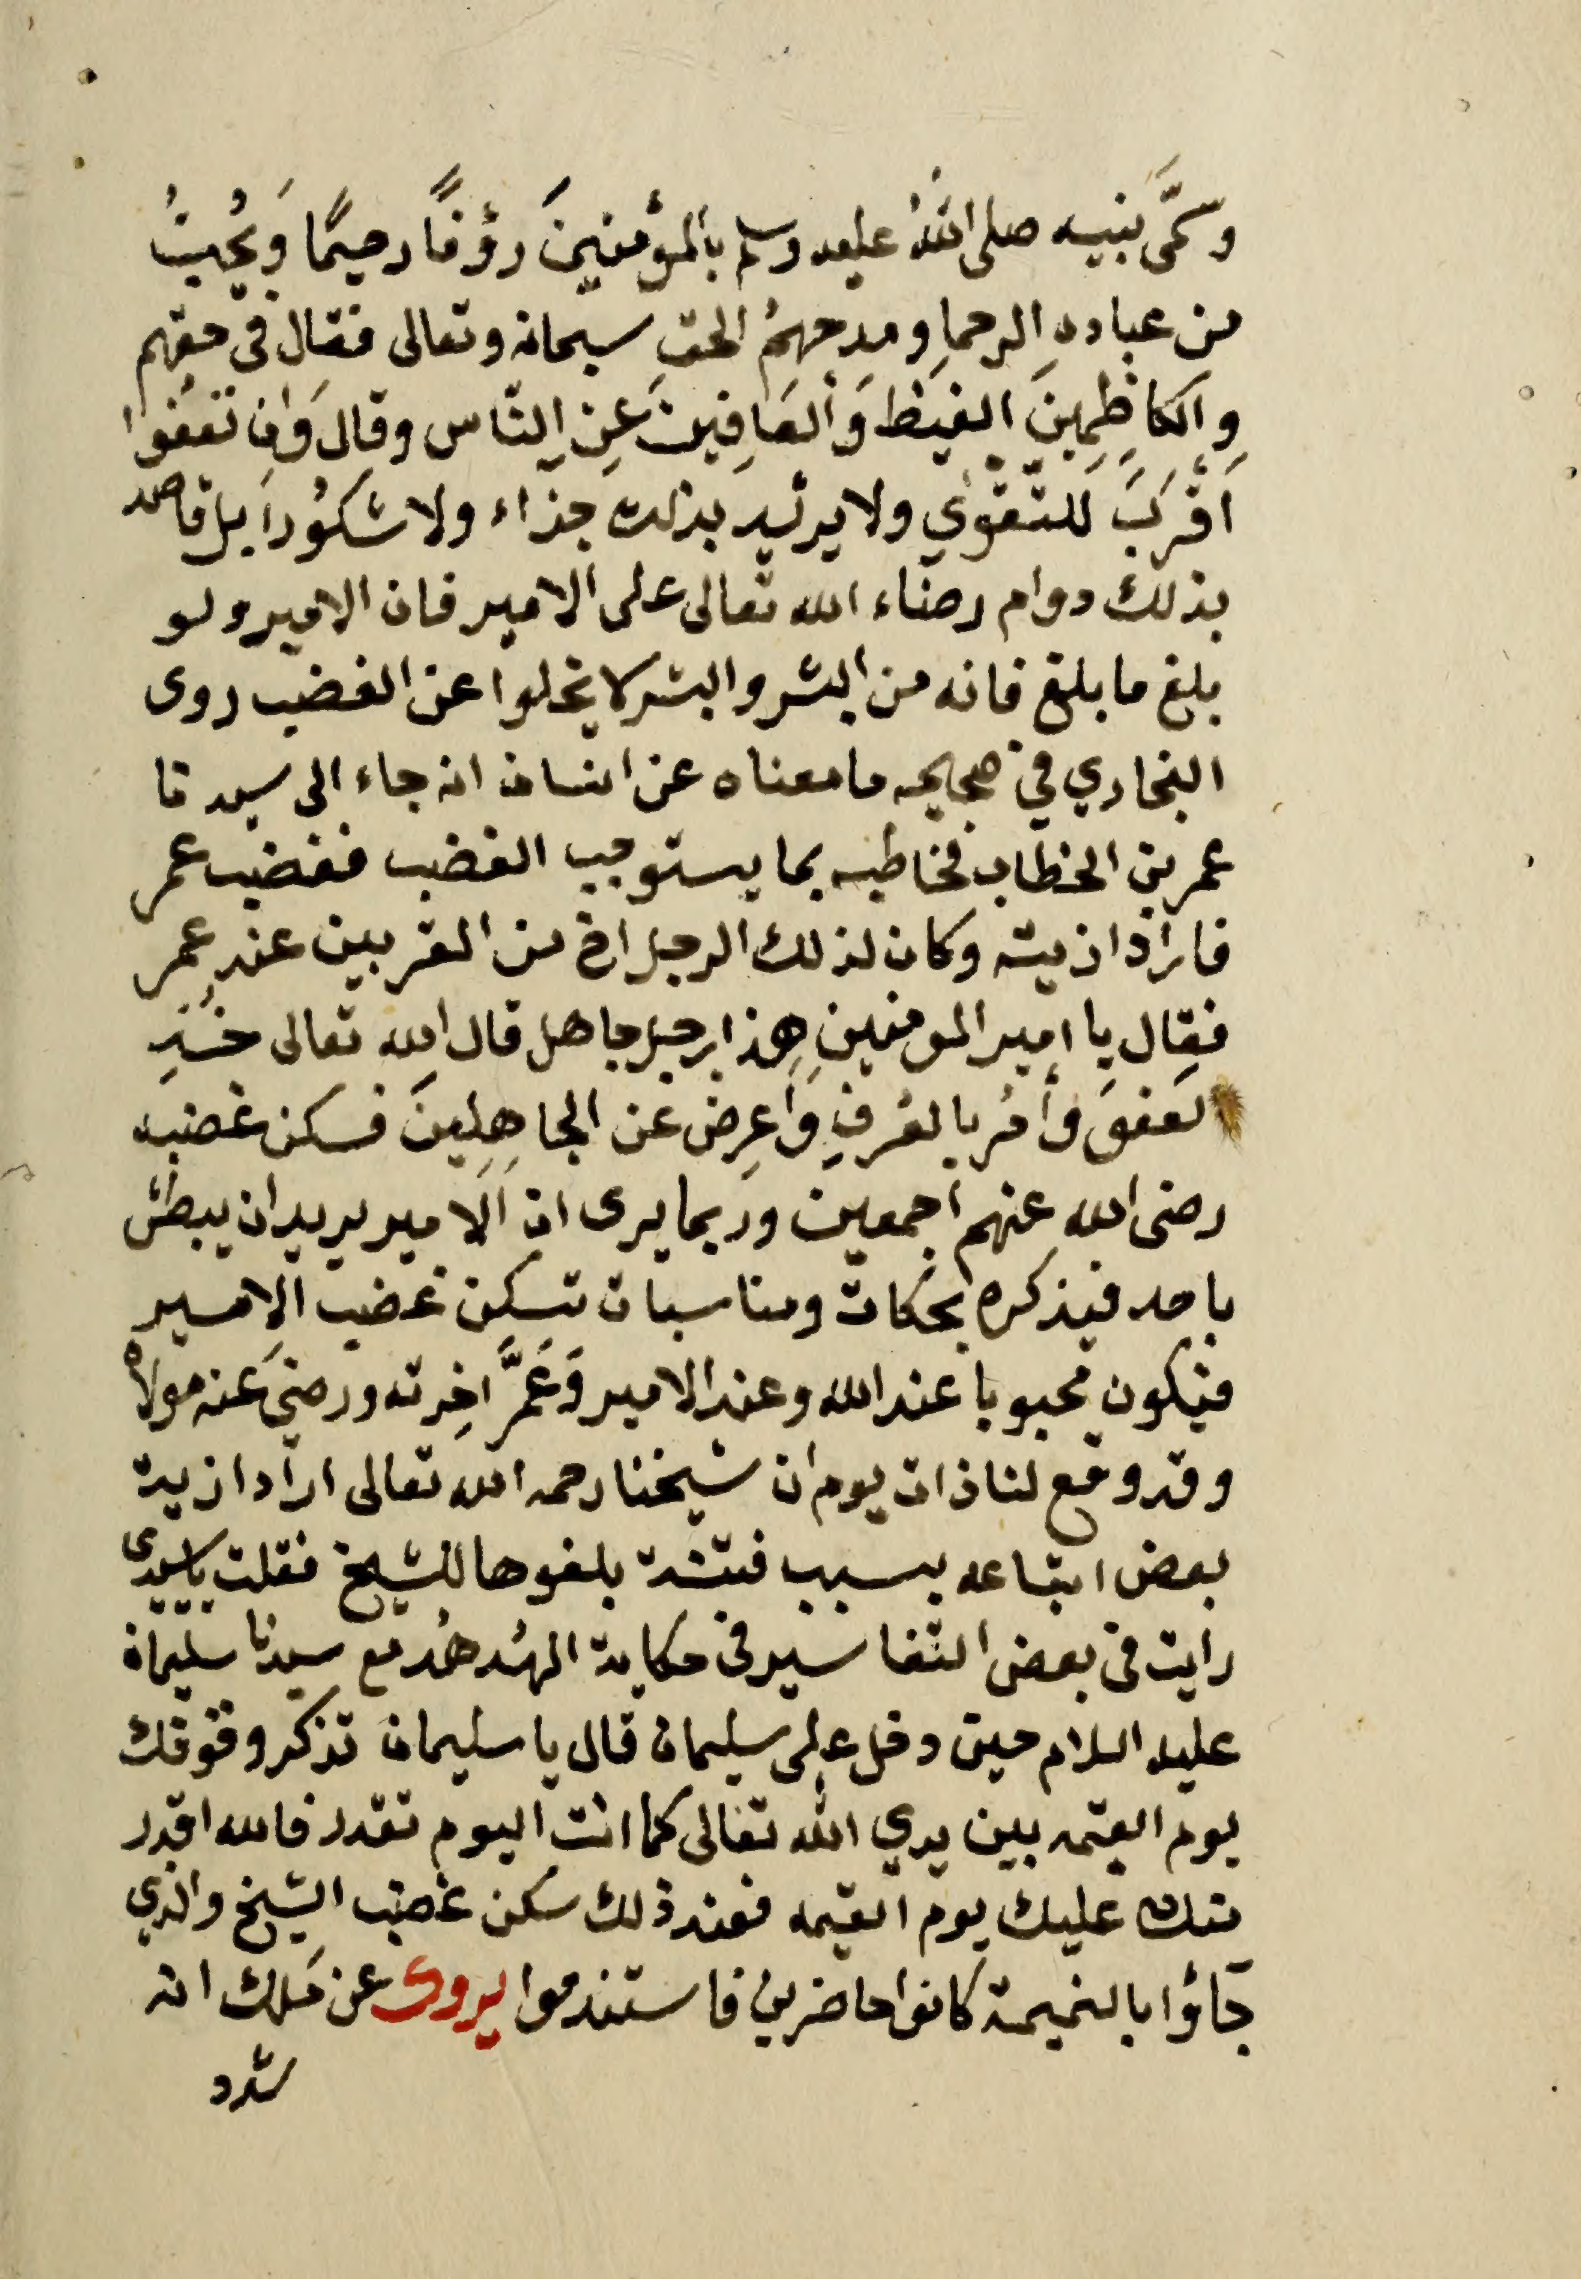 وسَمَّى نبيه صلى اللهُ عليه وسلم بالمؤمنينَ رؤفًا رحيمًا وَيُحِبُّ
من عبادهِ الرحماِ ومدحهمُ الحق سبحانه وتعالى فقال فى حقهم
وِالكَاظِمِينَ الغيظ وَالعَافِينَ عَنِ النّاس وقالَ وَان تعفوا
اَقْرَبَ للتّقوَي ولا يريد بذلك جذاء ولا شكوُراً بل قاصد
بذلك دوام رضاء الله تعالى على الامير فان الامير ولو
بلغ ما بلغ فانه من البشر والبشر لا يخلوا عن الغضب روى
البخاري في صحيحه ما معناه عن انسان انه جاء الى سيدنا
عمر بن الخطاب فخاطبه بما يستوجب الغضب فغضب عمر
فاراد اذيته وكان لذلك الرجل اخ من المقربين عند عمر
فقال يا امير المومنين هذا رجل جاهل قال الله تعالى خُذِ
لعفوَ وَأمُر بالعُرفِ وَاَعرِض عَن الجاهِلِينَ فسكن غضبه
رضى الله عنهم اجمعين وربما يرى ان الامير يريد ان يبطش
باحد فيذكره بحكات ومناسبات تسكن غضب الامير
فيكون محبوبا عند الله وعند الامير وَعَمَّر اخِرته ورضيَ عنه مولاه
وقد وقع لنا ذات يوم ان شيخنا رحمه الله تعالى اراد اذية
بعض اتباعه بسبب فتنة بلغوها للشيخ فقلت يا سيدى
رايت فى بعض التفاسير فى حكاية الهُدهُد مع سيدنا سليمان
عليه السلام حين دخل على سليمان قال يا سليمان تذكر وقوفك
يوم القيمه بين يدي الله تعالى كما انت اليوم تقدر فالله اقدر
منك عليك يوم القيمه فعند ذلك سكن غضب الشيخ والذي
جَاؤا بالنميمة كانوا حاضرين فاستندموا يروى عن مَلك انه
شدد